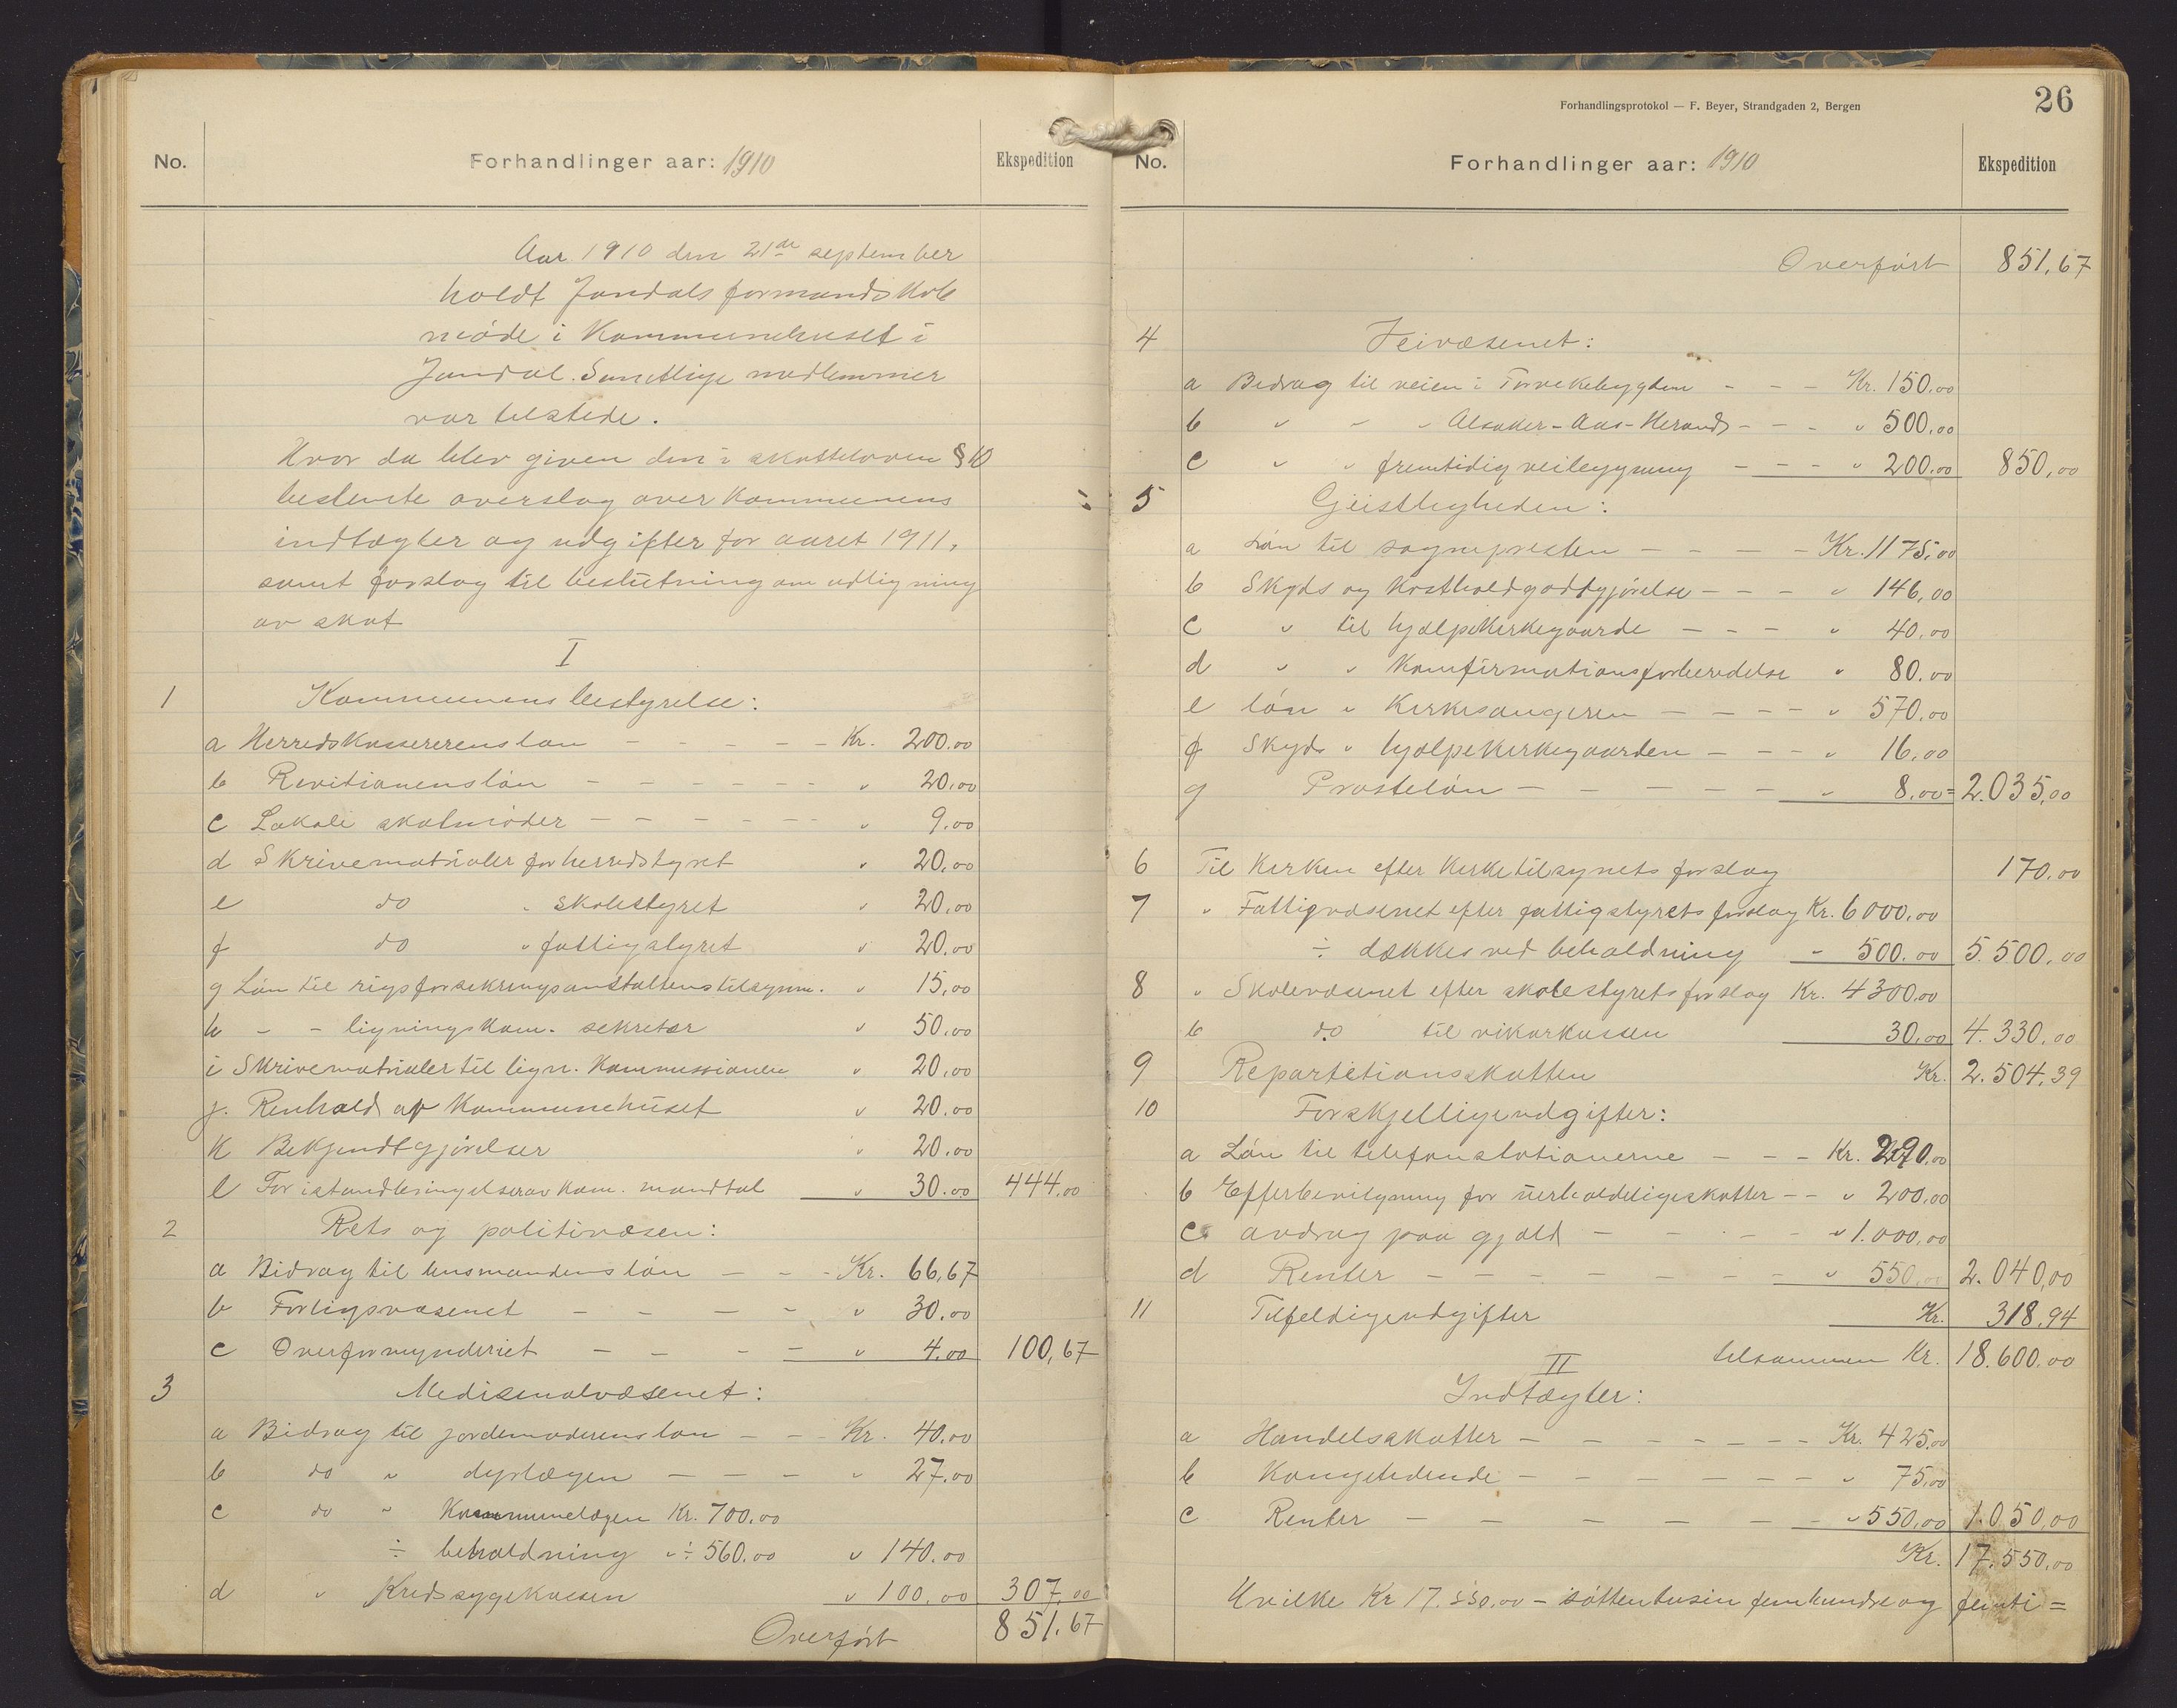 No. Forhandlinger aar: 1910 Ekspedition
Aar 1910 den 21de september
holdt Jondals formandskab
møde i Kommunehuset i
Jondal. Samtlige medlemmer
var tilstede.
Hvor da blev given den i skatteloven § 10
bestemte overslag over Kommunens
indtægter og udgifter for aaret 1911,
samt forslag til beslutning om udligning
av skat
I
1 Kommunens bestyrelse:
a Herredskassererens løn - - - - - Kr. 200.00
b Revitionens løn - - - - - - " 20.00
c Lokale skatmøder - - - - - - " 9.00
d Skrivematrialer for herredstyret " 20.00
e do " skolestyret " 20.00
f do " fattigstyret " 20.00
g Løn til rigsforsekringsanstaltens tilsynm. " 15.00
h - - ligningskom. sekretær " 50.00
i Skrivematrialer til lign. Kommissionen " 20.00
j. Renhold af Kommunehuset " 20.00
k Bekjendtgjørelser " 20.00
l For istandbringelser av kom. mandtal " 30.00 444.00
2 Rets og politivæsen:
a Bidrag til lensmandens løn - - - Kr. 66,67
b Forligsvæsenet - - - - " 30.00
c Overformynderiet - - - - " 4.00 100,67
3 Medisinalvæsenet:
a Bidrag til jordemoderens løn - - - Kr. 40.00
b do " dyrlægen - - - " 27.00
c do " Kommunelægen Kr. 700.00
÷ beholdning " ÷ 560.00 " 140.00
d " Kredssygekassen " 100.00 307.00
Overført 851.67
Forhandlingsprotokol — F. Beyer, Strandgaden 2, Bergen
26
No. Forhandlinger aar: 1910 Ekspedition
Overført 851,67
4 Veivæsenet:
a Bidrag til veien i Torvikebygden - - - Kr. 150.00
b " " " Alsaker-Aas-Herands - - - " 500.00
c " " fremtidig veibygning - - - - " 200.00 850.00
5 Geistligheden:
a Løn til sognepresten - - - - - Kr. 1175.00
b Skyds og Kostholdgodtgjørelse - - - " 146,00
c " til hjælpekirkegaarde - - - " 40.00
d " " Komfirmationsforberedelse " 80.00
e løn " Kirkesangeren - - - - " 570.00
f Skyds " hjælpekirkegaarden - - - " 16.00
g Prosteløn - - - - - - " 8.00= 2.035,00
6 Til Kirken efter Kirketilsynets forslag 170.00
7 " Fattigvæsenet efter fattigstyrets forslag Kr. 6000,00
÷ dækkes ved beholdning - 500.00 5.500,00
8 " Skolevæsenet efter skolestyrets forslag Kr. 4300.00
b do til vikarkassen 30,00 4.330,00
9 Repartitionsskatten Kr. 2.504,39
10 Forskjellige udgifter:
a Løn til telefonstationerne - - - Kr. 290.00
b Efterbevilgning for uerholdelige skatter - - " 200.00
c avdrag paa gjæld - - - - - " 1.000,00
d Renter - - - - - - - - " 550,00 2.040,00
11 Tilfeldige udgifter Kr. 318.94
tilsammen Kr. 18.600.00
II
Indtægter:
a Handelsskatter - - - - - - - Kr. 425.00
b Kongetiende - - - - - - - " 75.00
c Renter - - - - - - - " 550,00 1.050,00
Kr. 17.550,00
Hvilke Kr 17.550,00 - søttentusin femhundre og femti =